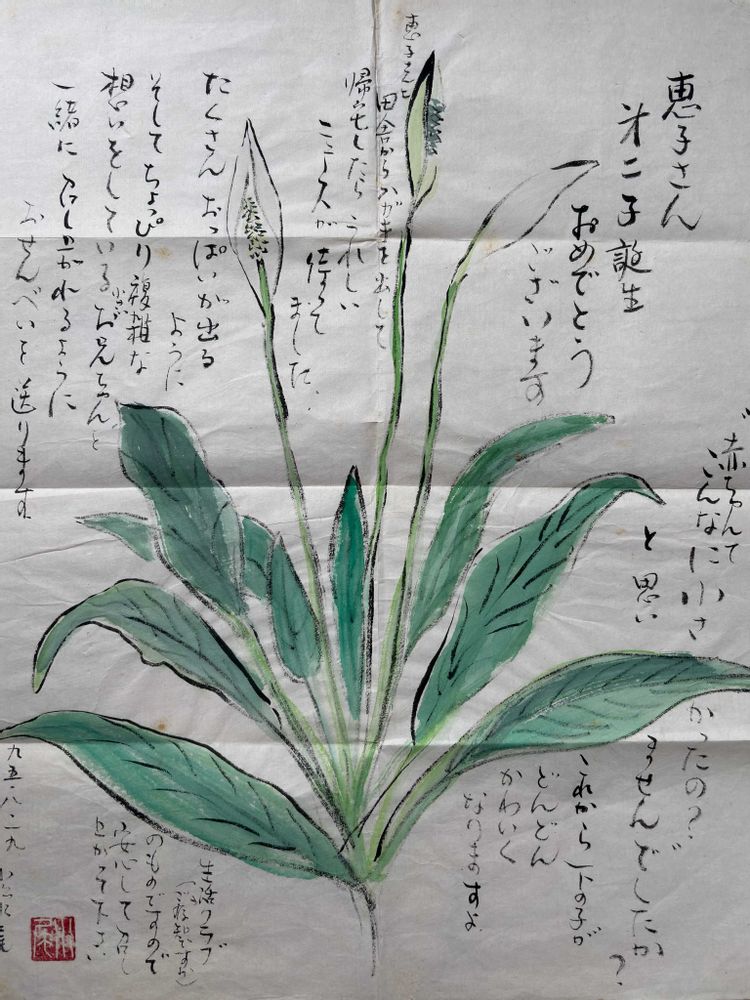 恵子さん
才二子誕生
おめでとう
ございます
赤ちゃんて
こんなに小さかったの？
と思いませんでしたか？
これから下の子が
どんどん
かわいく
なりますよ
恵子さんに
田舎からハガキを出して
帰宅したらうれしい
ニュースが待って
ました。
たくさんおっぱいが出る
ように
そしてちょっぴり複雑な
想いをしているお兄ちゃんと
一緒に召し上がれるように
おせんべいを送ります
生活クラブ
(ご存知ですか)
のものですので
安心して召し
上がって下さい
九五・八・二九